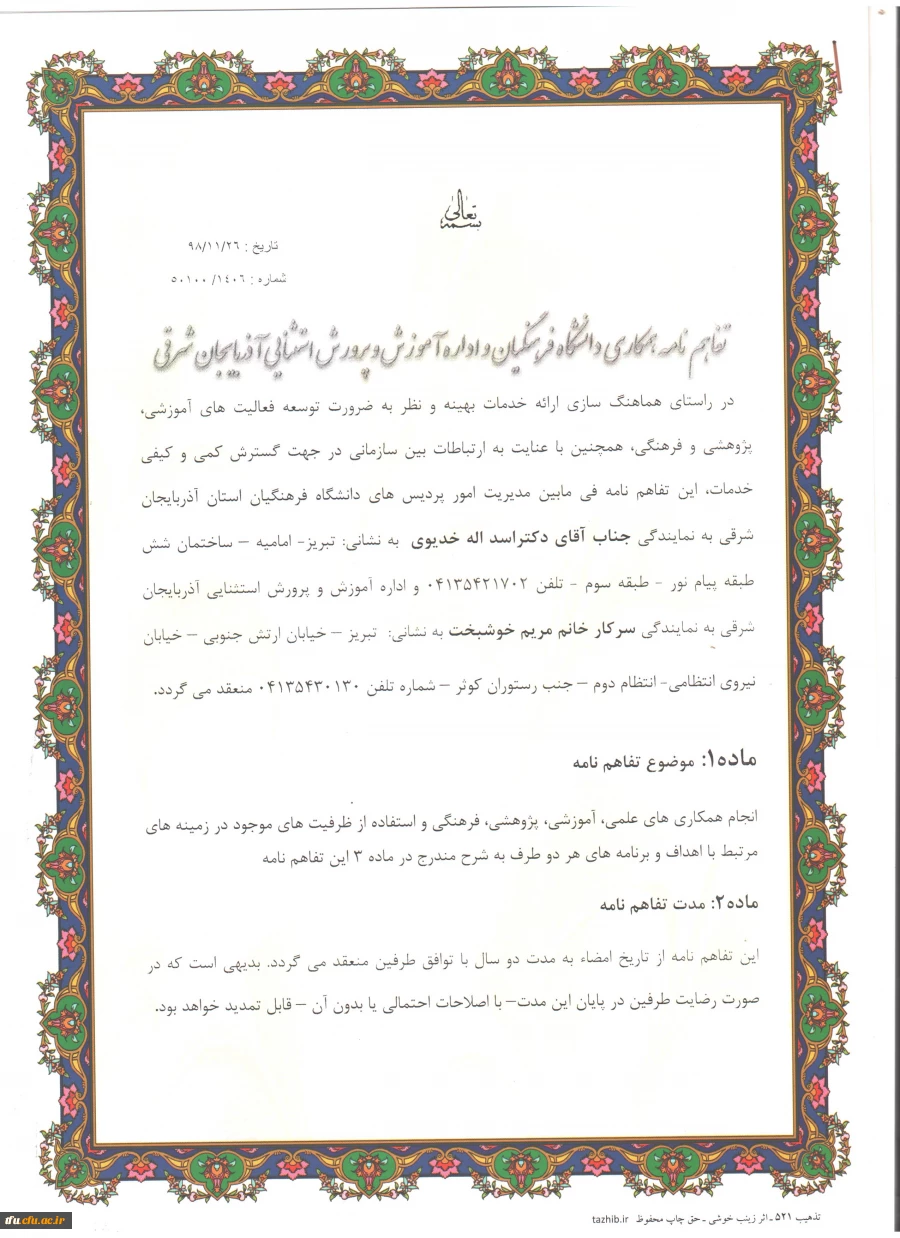 بسمه تعالی
تاریخ : ۹۸/۱۱/۲۶
شماره : ۵۰۱۰۰/۱٤۰۶
تفاهم نامه همکاری دانشگاه فرهنگیان و اداره آموزش و پرورش استثنایی آذربایجان شرقی
در راستای هماهنگ سازی ارائه خدمات بهینه و نظر به ضرورت توسعه فعالیت های آموزشی،
پژوهشی و فرهنگی، همچنین با عنایت به ارتباطات بین سازمانی در جهت گسترش کمی و کیفی
خدمات، این تفاهم نامه فی مابین مدیریت امور پردیس های دانشگاه فرهنگیان استان آذربایجان
شرقی به نمایندگی جناب آقای دکتراسد اله خدیوی به نشانی: تبریز- امامیه – ساختمان شش
طبقه پیام نور - طبقه سوم - تلفن ۰۴۱۳۵۴۲۱۷۰۲ و اداره آموزش و پرورش استثنایی آذربایجان
شرقی به نمایندگی سرکار خانم مریم خوشبخت به نشانی: تبریز – خیابان ارتش جنوبی – خیابان
نیروی انتظامی- انتظام دوم – جنب رستوران کوثر – شماره تلفن ۰۴۱۳۵۴۳۰۱۳۰ منعقد می گردد.
ماده۱: موضوع تفاهم نامه
انجام همکاری های علمی، آموزشی، پژوهشی، فرهنگی و استفاده از ظرفیت های موجود در زمینه های
مرتبط با اهداف و برنامه های هر دو طرف به شرح مندرج در ماده ۳ این تفاهم نامه
ماده۲: مدت تفاهم نامه
این تفاهم نامه از تاریخ امضاء به مدت دو سال با توافق طرفین منعقد می گردد. بدیهی است که در
صورت رضایت طرفین در پایان این مدت– با اصلاحات احتمالی یا بدون آن – قابل تمدید خواهد بود.
تذهیب ۵۲۱ ـ اثر زینب خوشی ـ حق چاپ محفوظ tazhib.ir
tfu.cfu.ac.ir